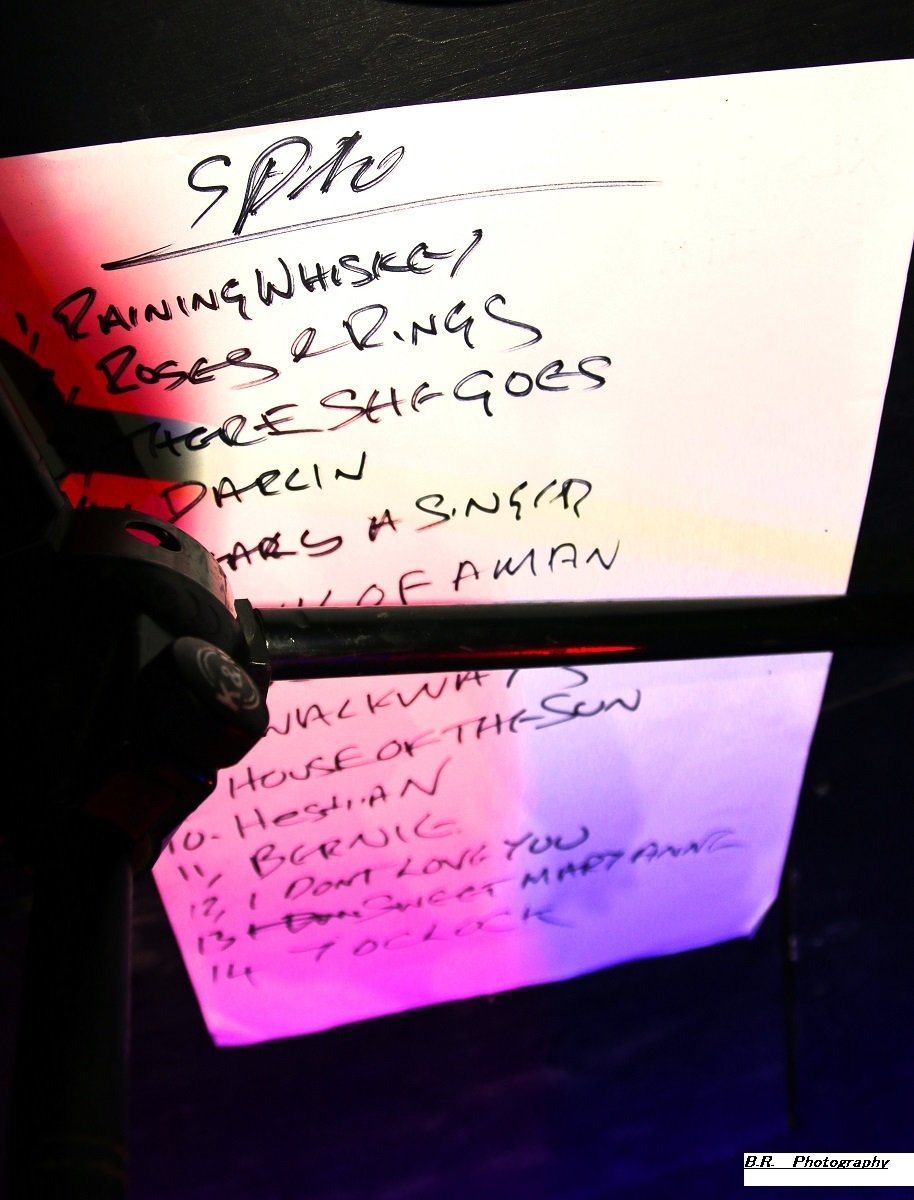 1, RAINING WHISKEY
ROSES & RINGS
THERE SHE GOES
DARLIN
A SINGER
OF A MAN
WALKWAYS
HOUSE OF THE SUN
10. HESSIAN
11, BERNIE
12, I DONT LOVE YOU
13 SWEET MARY ANNE
14 7 OCLOCK
K&M
B.R. Photography